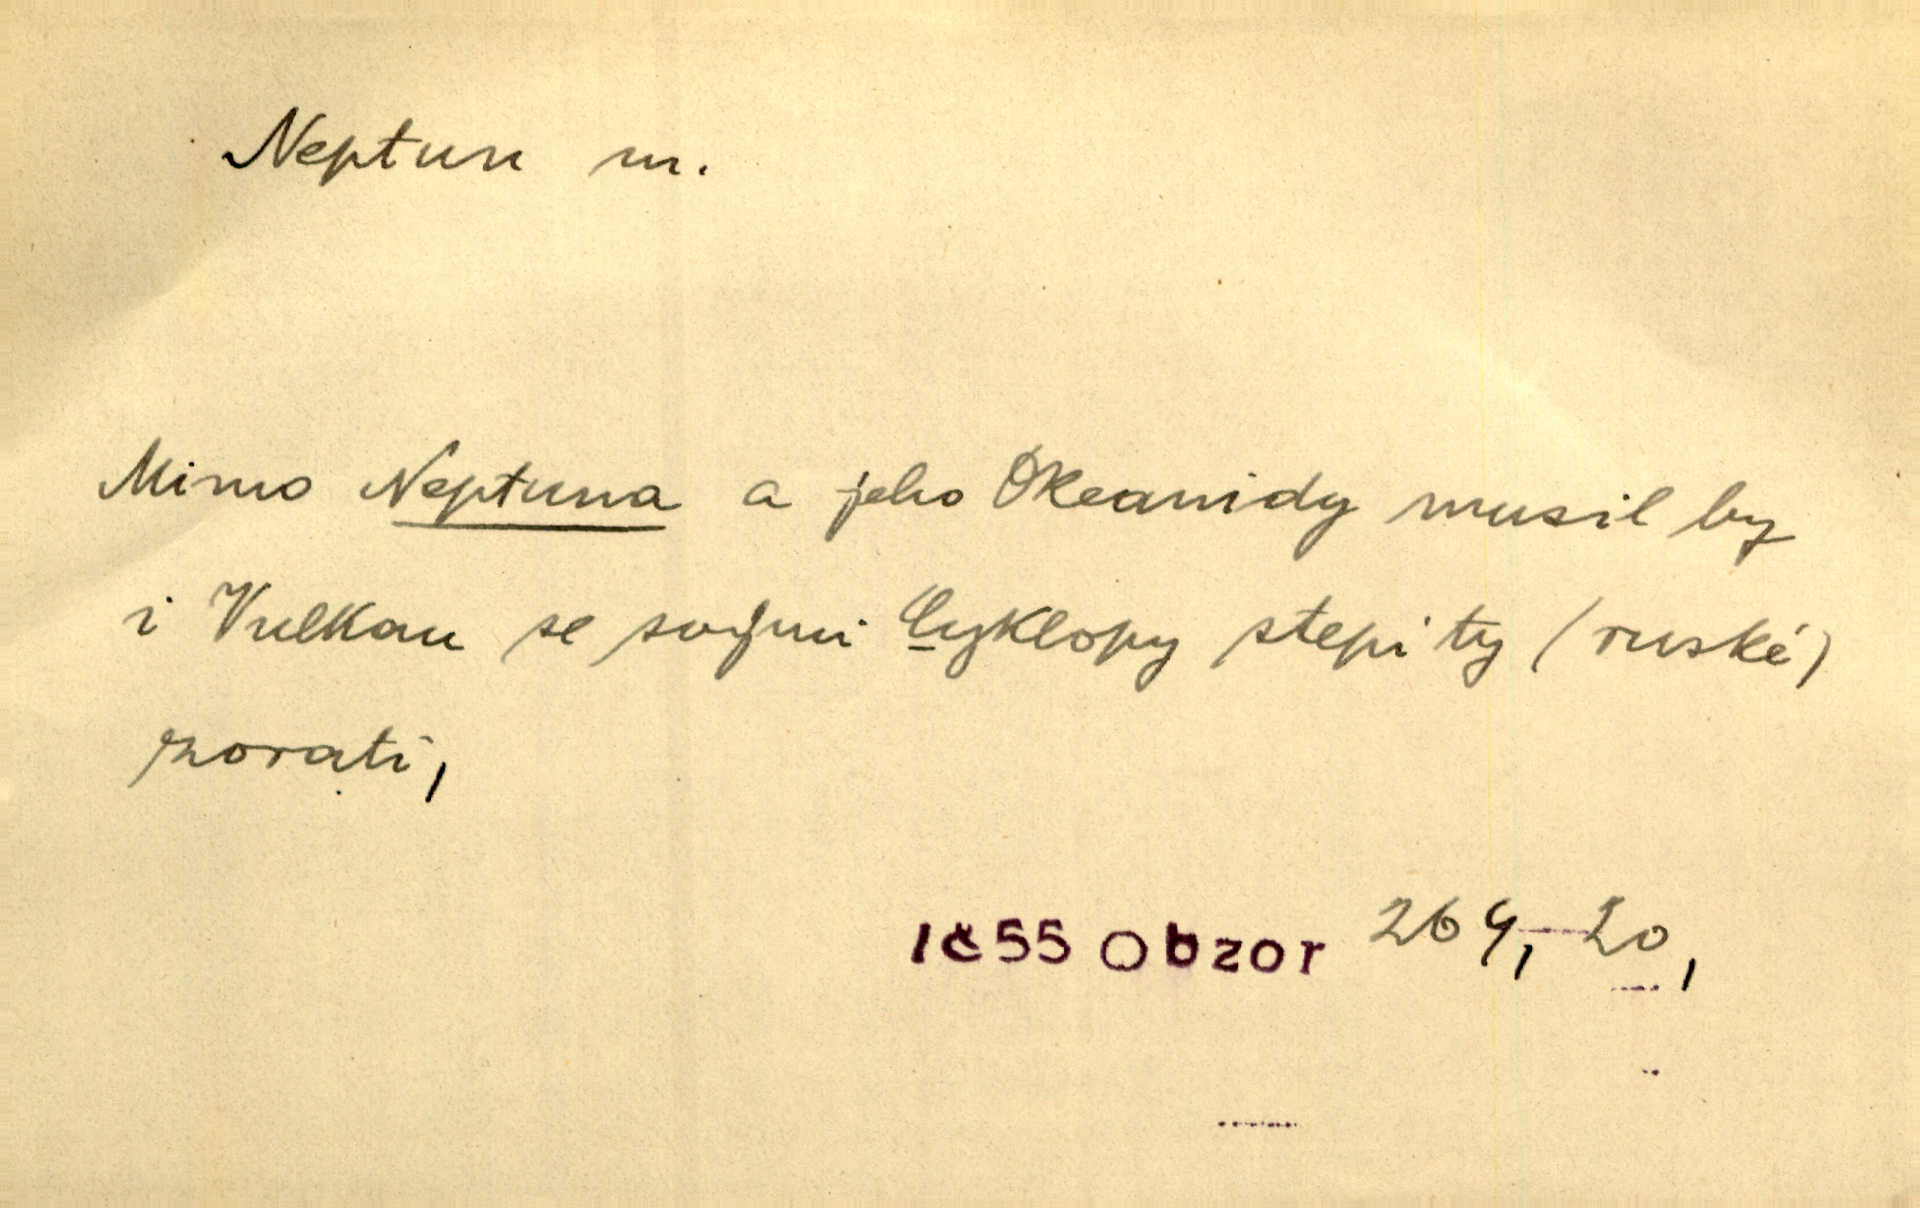 Neptun m.
Mimo Neptuna a jeho Okeanidy musil by
i Vulkan se svými Cyklopy stepi ty (ruské)
zorati,
1855 Obzor 264,-20,